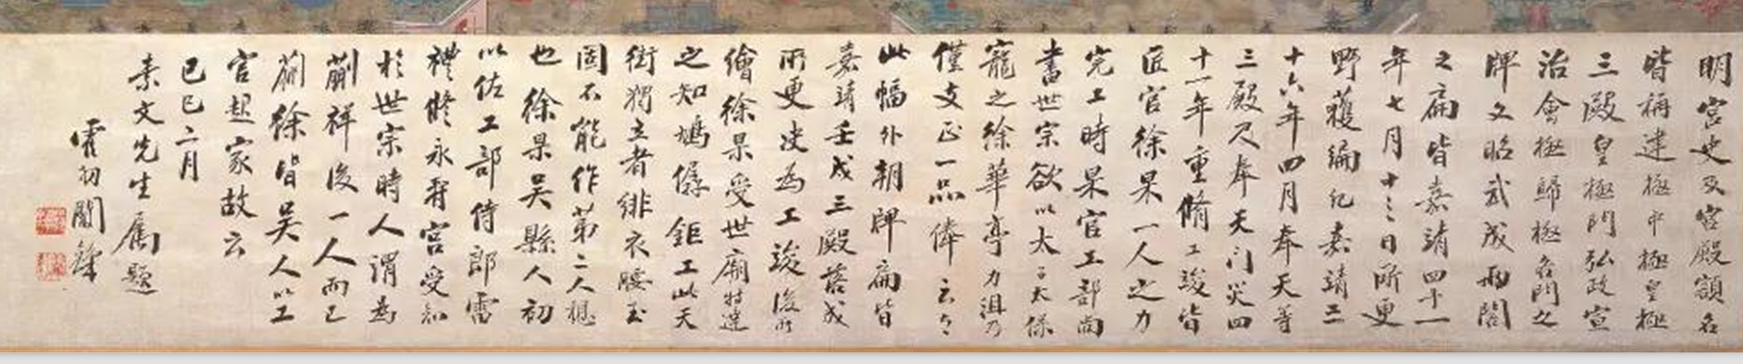 明宮史及宮殿額名
皆稱建極中極皇極
三殿皇極門弘政宣
治會極歸極各門之
牌文昭武成兩閣
之扁皆嘉靖四十一
年七月十三日所更
野獲編紀嘉靖三
十六年四月奉天等
三殿及奉天門災四
十一年重脩工竣皆
匠官徐杲一人之力
完工時杲官工部尚
書世宗欲以太子太保
寵之徐華亭力沮乃
僅支正一品俸云云
此幅外朝牌扁皆
嘉靖壬戌三殿落成
所更決為工竣後所
繪徐杲受世廟特達
之知鳩僝鉅工此天
街獨立者緋衣腰玉
固不能作第二人想
也徐杲吳縣人初
以佐工部侍郎雷
禮脩永壽宮受知
於世宗時人謂為
蒯祥後一人而已
蒯徐皆吳人以工
官起家故云
己巳二月
素文先生屬題
霍初闞鐸